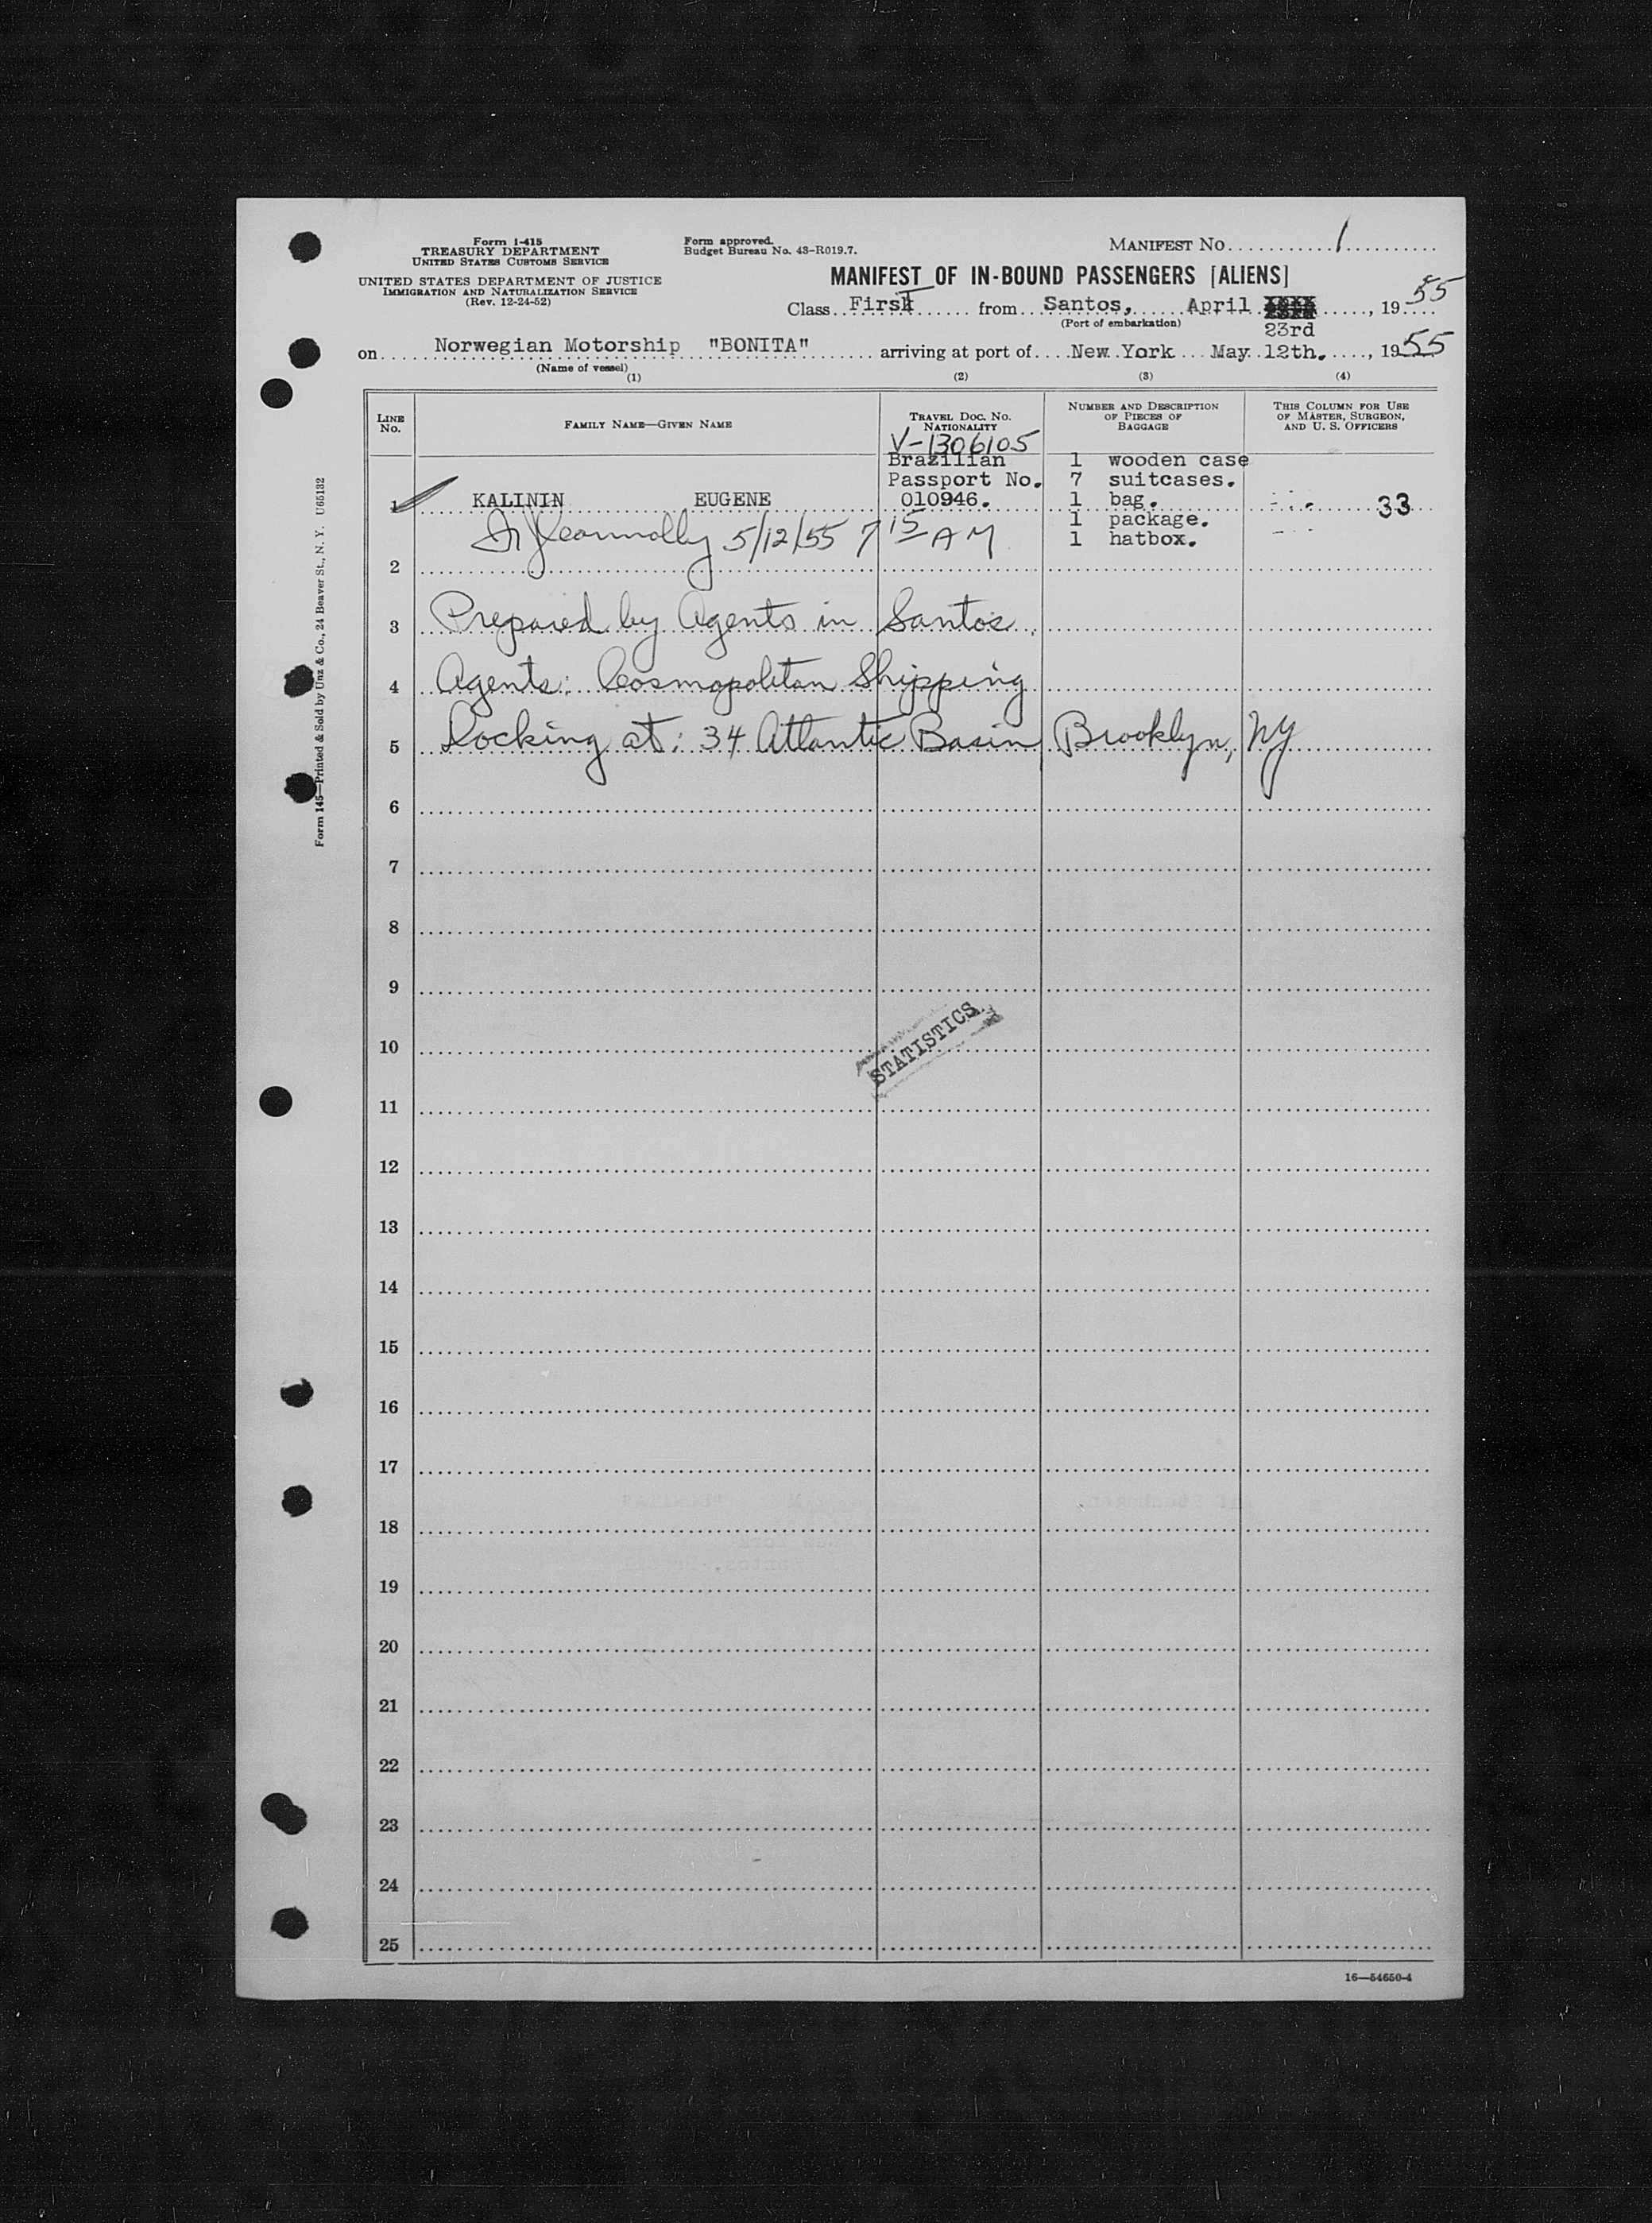 Form I-415
TREASURY DEPARTMENT
UNITED STATES CUSTOMS SERVICE
UNITED STATES DEPARTMENT OF JUSTICE
IMMIGRATION AND NATURALIZATION SERVICE
(Rev. 12-24-52)
Form approved.
Budget Bureau No. 43-R019.7.
MANIFEST NO. 1
MANIFEST OF IN-BOUND PASSENGERS [ALIENS]
Class First from Santos, April 23rd, 1955
(Port of embarkation)
on Norwegian Motorship "BONITA" arriving at port of New York May 12th., 1955
(Name of vessel)
(1) (2) (3) (4)
LINE NO.
FAMILY NAME—GIVEN NAME
TRAVEL DOC. NO. NATIONALITY
NUMBER AND DESCRIPTION OF PIECES OF BAGGAGE
THIS COLUMN FOR USE OF MASTER, SURGEON, AND U. S. OFFICERS
V-1306105
Brazilian 1 wooden case
Passport No. 7 suitcases.
1 KALININ EUGENE 010946. 1 bag. 33
1 package.
5/12/55 7 15 AM 1 hatbox.
2
3 Prepared by Agents in Santos
4 Agents: Cosmopolitan Shipping
5 Docking at: 34 Atlantic Basin Brooklyn, NY
6
7
8
9
STATISTICS
10
11
12
13
14
15
16
17
18
19
20
21
22
23
24
25
16—54650-4
Form 145—Printed & Sold by Unz & Co., 24 Beaver St., N. Y. U65132